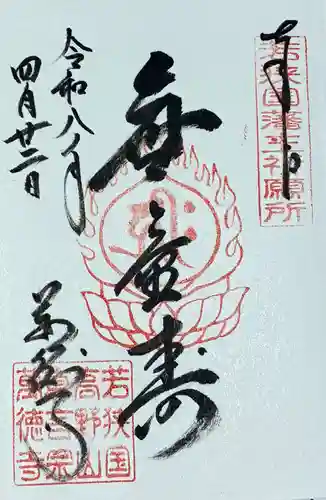 奉拝
若狭国藩主祈願所
無量寿
令和八年
四月廿二日
萬徳寺
若狭国
高野山
真言宗
萬徳寺